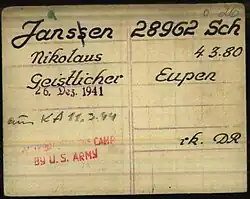 Janssen 28962 Sch
Nikolaus 4.3.80
Geistlicher Eupen
26. Dez. 1941
KA 11.3.44
rk. DR
CAMP
BY U.S. ARMY